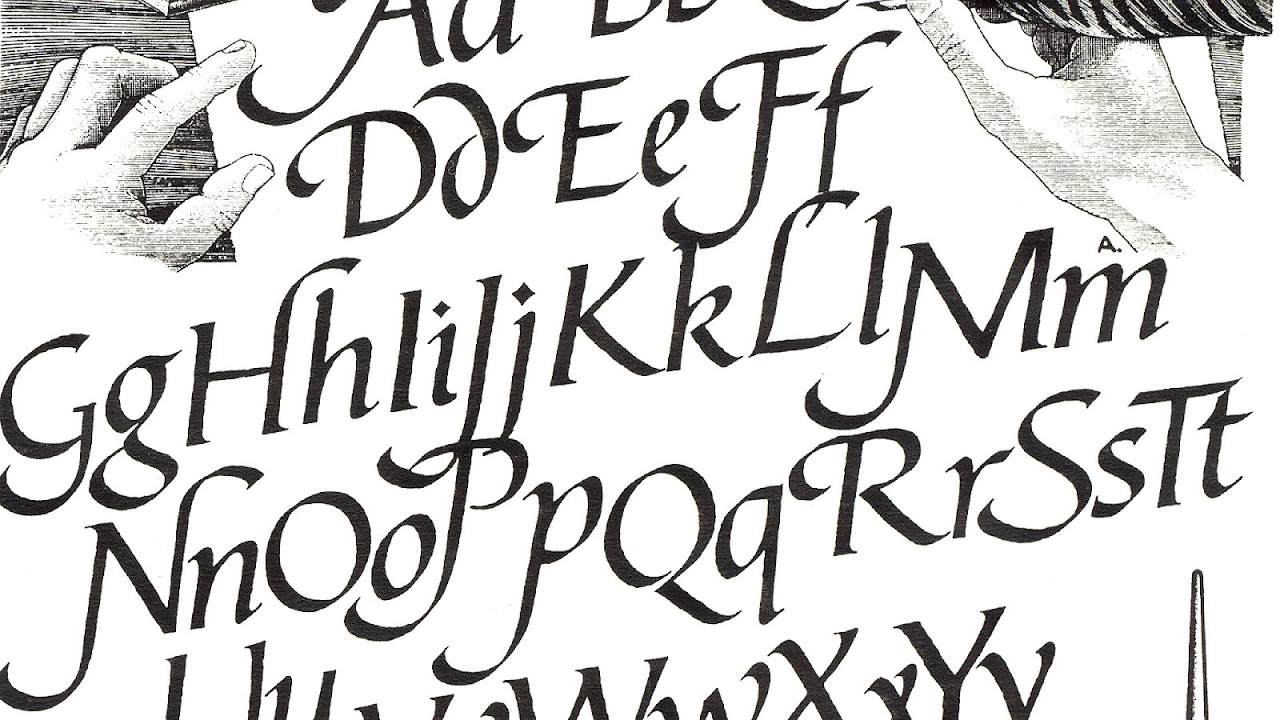 Aa Bb C
Dd Ee Ff
Gg Hh Ii Jj Kk Ll Mm
A.
Nn Oo Pp Qq Rr Ss Tt
Uu Vv Ww Xx Yy